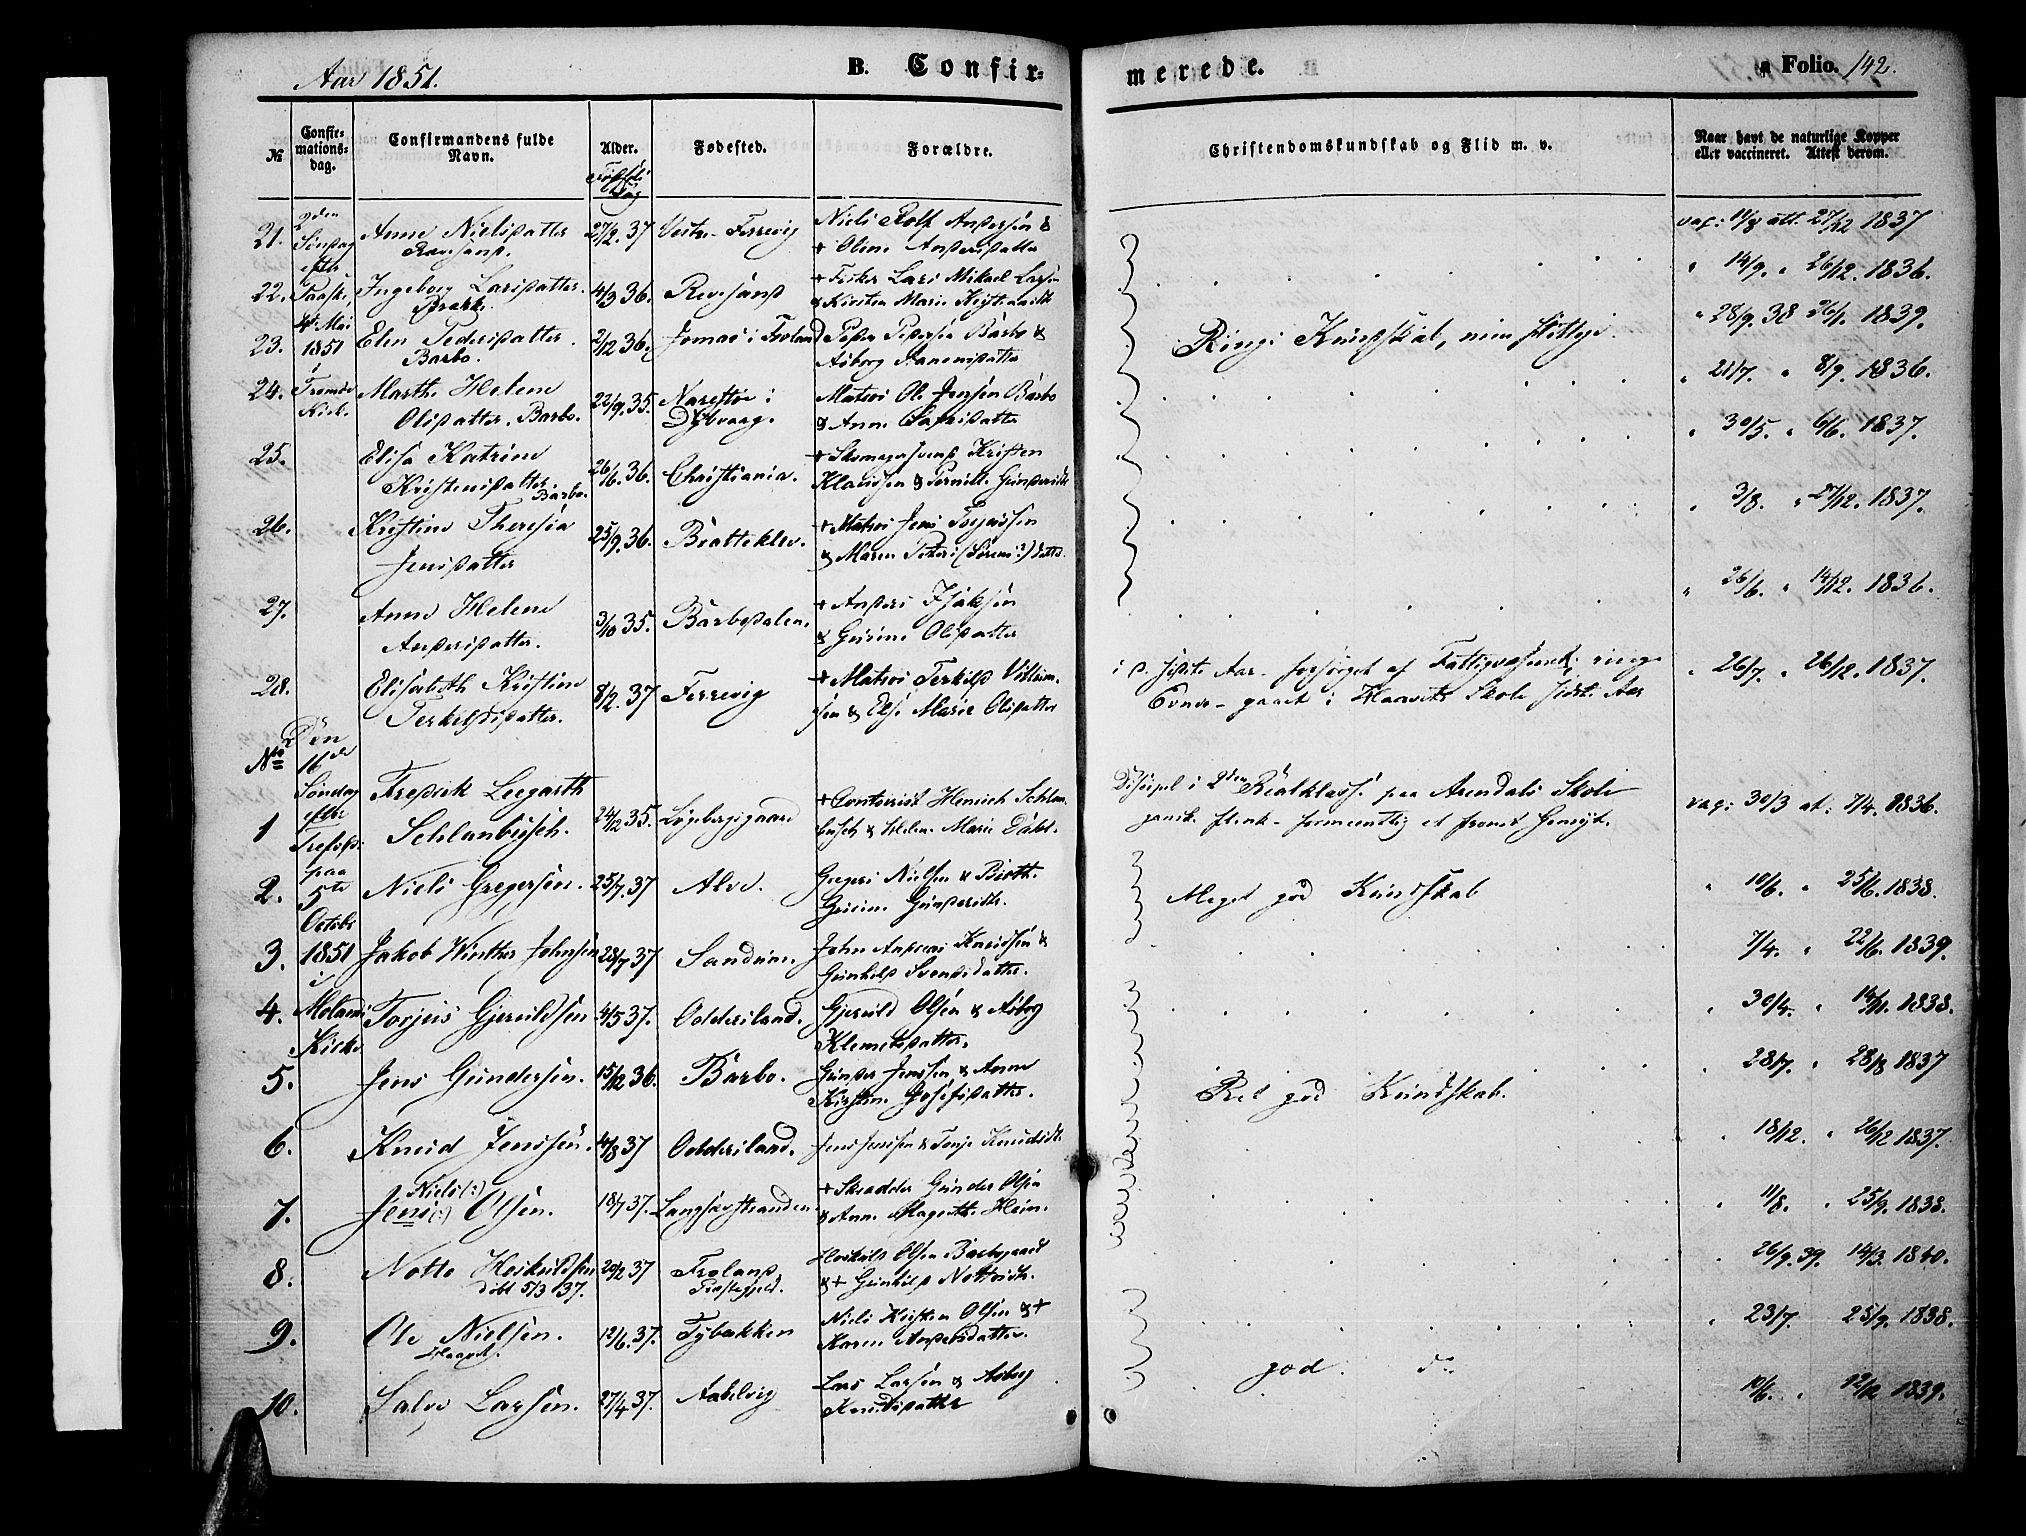 Aar 1851.
B. Confir-
merede.
Folio. 142.
№
Confir-
mations-
dag.
Confirmandens fulde
Navn.
Alder.
Fødested.
Forældre.
Christendomskundskab og Flid m. v.
Naar havt de naturlige Kopper
eller vaccineret. Attest derom.
21. Anne Nielsdatter 27/2. 37 Vestre Færevig Niels Rolf Andersen &
Revesand. + Oline Andersdatter
vac: 11/8 att. 27/12 1837
22. Ingeborg Larsdatter 4/3 36. Revesand + Fisker Lars Mikael Larsen
& Kirsten Marie
" 14/9. " 26/12. 1836.
4de Mai
1851
23. Elen Pedersdatter. 2/12 36. i Froland Peder Pedersen Barbo &
Barbo. Asborg Aanensdatter
Ringe Kundskab, min. flittige.
" 28/9. 38 26/1. 1839.
i
Tromø
Kirke.
24. Marthe Helene 22/9. 35. Narestøe i Matros Ole Jensen Barbo
Olsdatter. Barbo. Dybvaag. & Anne
" 21/7. " 8/9. 1836.
25. Elise Katrine 26/6. 36. Christiania. + Skomagersvend Kristen
Kristensdatter. Barbo. Klausen & Pernille Gundersdtr
" 30/5. " 6/6. 1837.
26. Kristine Theresia 25/9. 36. Bratteklev. + Matros Jens Torjussen
Jensdatter & Maren Peders (Sørens?) datter.
" 3/8. " 27/12. 1837.
27. Anne Helene 3/10 35. Barbodalen. + Anders Isaksen
Andersdatter. & Gurine Olsdatter
" 26/6. " 14/12. 1836.
28. Elisabeth Kristine 8/2. 37 Færevig + Matros Terkild Villum-
Terkildsdatter. sen & Else Marie Olsdatter
i d. sidste Aar forsørget af Fattigvæsenet; ringe
Evner - gaaet i Skole sidste Aar
" 26/7. " 26/12. 1837.
No Den
16de
Søndag
efter
Trefold:
paa
5te
Octobr
1851
i
Molands
Kirke
1 Fredrik Leegarth 24/2 35. Løgebergsgaard + Contorist Henrich Schlan-
Schlanbusch. busch & Helene Marie Dahl.
Discipel i 2den Realklasse paa Arendals Skole
flink - formeentlig et fromt Gemyt.
vac: 30/3 at: 7/4. 1836.
2. Niels Gregersen. 25/7. 37 Alve. Gregers Nielsen &
Gurine Gundersdtr.
Meget god Kundskab
" 10/6. " 25/6. 1838.
3. Jakob Winther Johnsen 28/7 37 Sandum. John Andreas Knudsen &
Gunhild Svendsdatter.
7/4. " 22/6. 1839.
4. Torjus Gjeruldsen 4/5 37. Oddersland. Gjeruld Olsen & Asborg
Klemetsdatter.
" 30/4. " 14/11. 1838.
5. Jens Gundersen. 15/12 36. Barbo. Gunder Jenssen & Anne
Kirstine Josefsdatter.
Ret god Kundskab.
" 28/7. " 28/8 1837
6. Knud Jenssen. 4/8 37 Oddersland. Jens Jenssen & Tonje Knudsdtr
" 18/12. " 26/12 1837.
7. Niels (:) + Skrædder Gunder Olsen
Jens (:) Olsen. 18/7 37. Langsævstranden & Anne Magrethe Hein.
" 11/8. " 25/9. 1838.
8. Notto Hoskuldsen 20/2 37 Froland Hoskuld Olsen Barbogaard
døbt 5/3 37. & + Gunhild Nottosdtr.
" 26/9. 39. 14/3. 1840.
9. Ole Nielsen. 12/6. 37. Tybakken Niels Kristen Olsen & +
Karen Andersdatter.
" 23/7. 25/9. 1838.
10. Salve Larsen. 27/4 37. Lars Larsen & Asborg
Knudsdatter
god. do
10/6. " 12/12 1839.